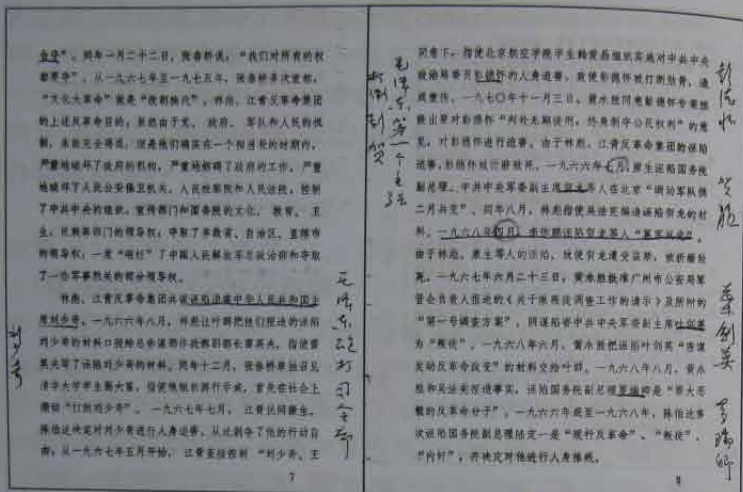 命”。同年一月二十二日，张春桥说，“我们对所有的权
都要夺”。从一九六七年至一九七五年，张春桥多次宣称，
“文化大革命”就是“改朝换代”。林彪、江青反革命集团
的上述反革命目的，虽然由于党、政府、军队和人民的抵
制，未能完全得逞，但是他们确实在一个相当长的时期内，
严重地破坏了政府的机构，严重地妨碍了政府的工作，严重
地破坏了人民公安保卫机关、人民检察院和人民法院，控制
了中共中央的组织、宣传部门和国务院的文化、教育、卫
生、民族等部门的领导权；夺取了多数省、自治区、直辖市
的领导权；一度“砸烂”了中国人民解放军总政治部和夺取
了一些军事机关的部分领导权。
林彪、江青反革命集团共谋诬陷迫害中华人民共和国主
席刘少奇。一九六六年八月，林彪让叶群把他们捏造的诬陷
刘少奇的材料口授给总参谋部作战部副部长雷英夫，指使雷
英夫写了诬陷刘少奇的材料。同年十二月，张春桥单独召见
清华大学学生蒯大富，指使他组织游行示威，首先在社会上
煽动“打倒刘少奇”。一九六七年七月，江青伙同康生、
陈伯达决定对刘少奇进行人身迫害，从此剥夺了他的行动自
由。从一九六七年五月开始，江青直接控制“刘少奇、王
7
刘少奇
毛泽东炮打司令部
打倒彭贺
毛泽东第一个主张
同意下，指使北京航空学院学生韩爱晶组织实施对中共中央
政治局委员彭德怀的人身迫害，致使彭德怀被打断肋骨，造
成重伤。一九七〇年十一月三日，黄永胜同意彭德怀专案组
提出要对彭德怀“判处无期徒刑，终身剥夺公民权利”的意
见，对彭德怀进行迫害。由于林彪、江青反革命集团的诬陷
迫害，彭德怀被折磨致死。一九六六年七月，康生诬陷国务院
副总理、中共中央军委副主席贺龙等人在北京“调动军队搞
二月兵变”。同年八月，林彪指使吴法宪编造诬陷贺龙的材
料。一九六八年四月，李作鹏诬陷贺龙等人“篡军反党”。
由于林彪、康生等人的诬陷，致使贺龙遭受监禁，被折磨致
死。一九六七年六月二十三日，黄永胜批准广州市公安局军
管会负责人报送的《关于揪叛徒调查工作的请示》及所附的
“第一号调查方案”，阴谋陷害中共中央军委副主席叶剑英
为“叛徒”。一九六八年六月，黄永胜把诬陷叶剑英“密谋
发动反革命政变”的材料交给叶群。一九六八年八月，黄永
胜和吴法宪捏造事实，诬陷国务院副总理聂瑞卿是“罪大恶
极的反革命分子”。一九六六年底至一九六八年，陈伯达多
次诬陷国务院副总理陆定一是“现行反革命”、“叛徒”、
“内奸”，并决定对他进行人身摧残。
彭德怀
贺龙
叶剑英